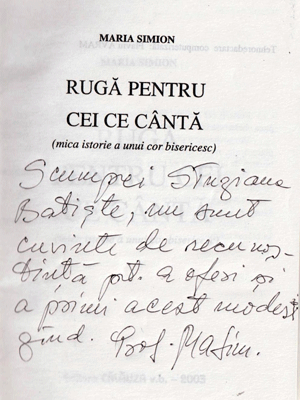 MARIA SIMION
RUGĂ PENTRU
CEI CE CÂNTĂ
(mica istorie a unui cor bisericesc)
Scumpei Sînziana
Batişte, nu sunt
cuvinte de recunoş-
tinţă pt. a oferi şi
a primi acest modest
gând. Prof. MaSim.